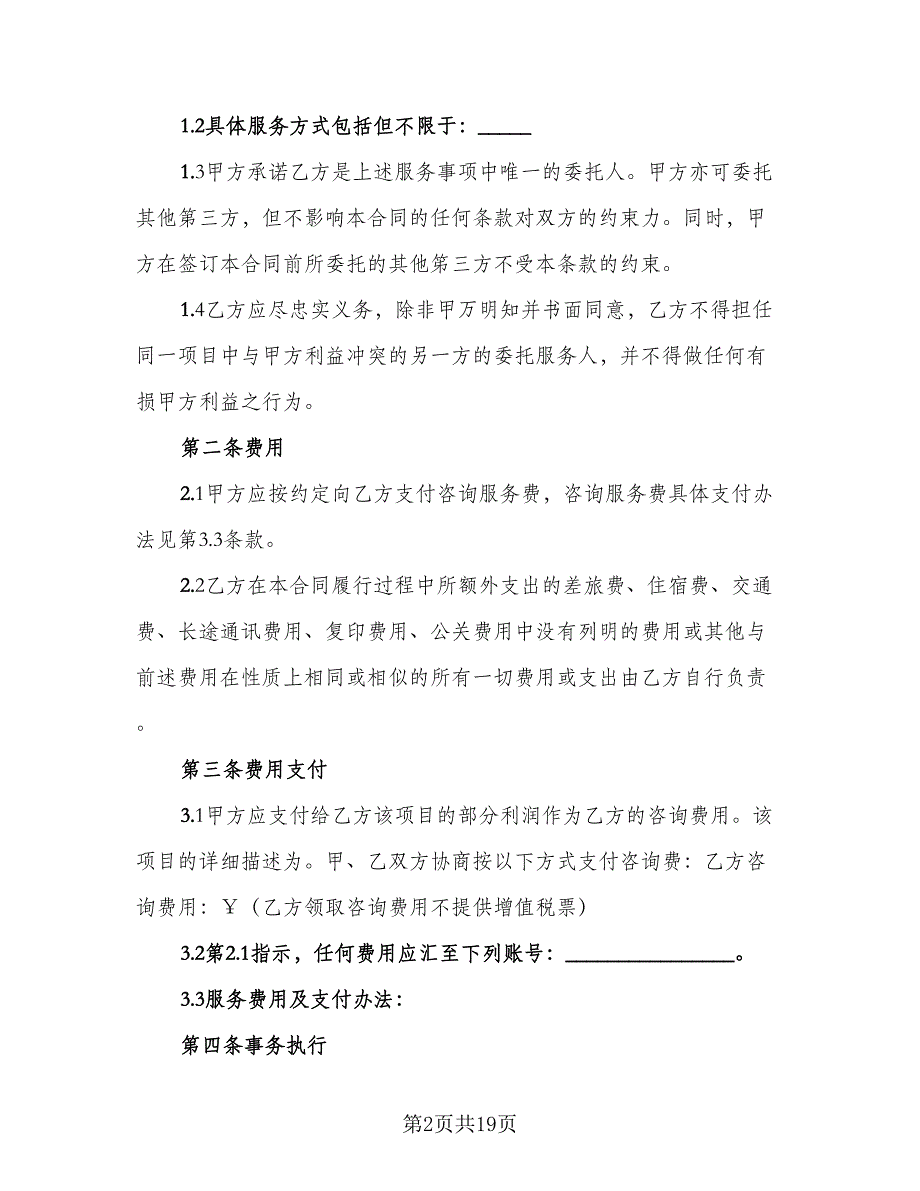 1.2具体服务方式包括但不限于：_____
1.3甲方承诺乙方是上述服务事项中唯一的委托人。甲方亦可委托
其他第三方，但不影响本合同的任何条款对双方的约束力。同时，甲
方在签订本合同前所委托的其他第三方不受本条款的约束。
1.4乙方应尽忠实义务，除非甲万明知并书面同意，乙方不得担任
同一项目中与甲方利益冲突的另一方的委托服务人，并不得做任何有
损甲方利益之行为。
第二条费用
2.1甲方应按约定向乙方支付咨询服务费，咨询服务费具体支付办
法见第3.3条款。
2.2乙方在本合同履行过程中所额外支出的差旅费、住宿费、交通
费、长途通讯费用、复印费用、公关费用中没有列明的费用或其他与
前述费用在性质上相同或相似的所有一切费用或支出由乙方自行负责
。
第三条费用支付
3.1甲方应支付给乙方该项目的部分利润作为乙方的咨询费用。该
项目的详细描述为。甲、乙双方协商按以下方式支付咨询费：乙方咨
询费用：￥（乙方领取咨询费用不提供增值税票）
3.2第2.1指示，任何费用应汇至下列账号：________________。
3.3服务费用及支付办法：
第四条事务执行
第2页共19页